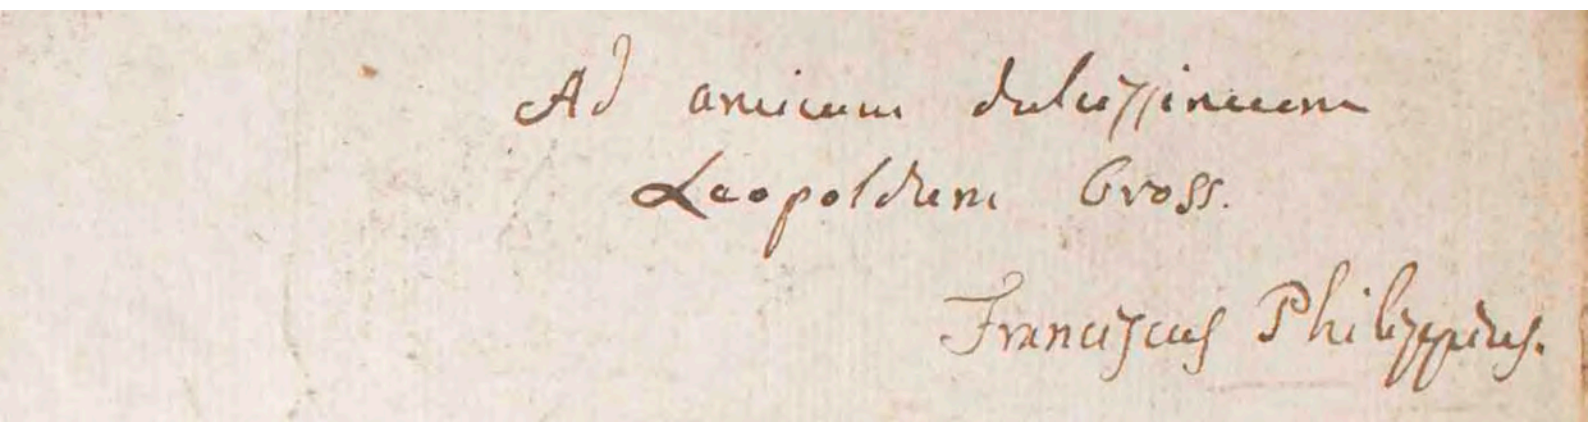 Ad amicum dulcissimum
Leopoldum Gross.
Franciscus Philippius.